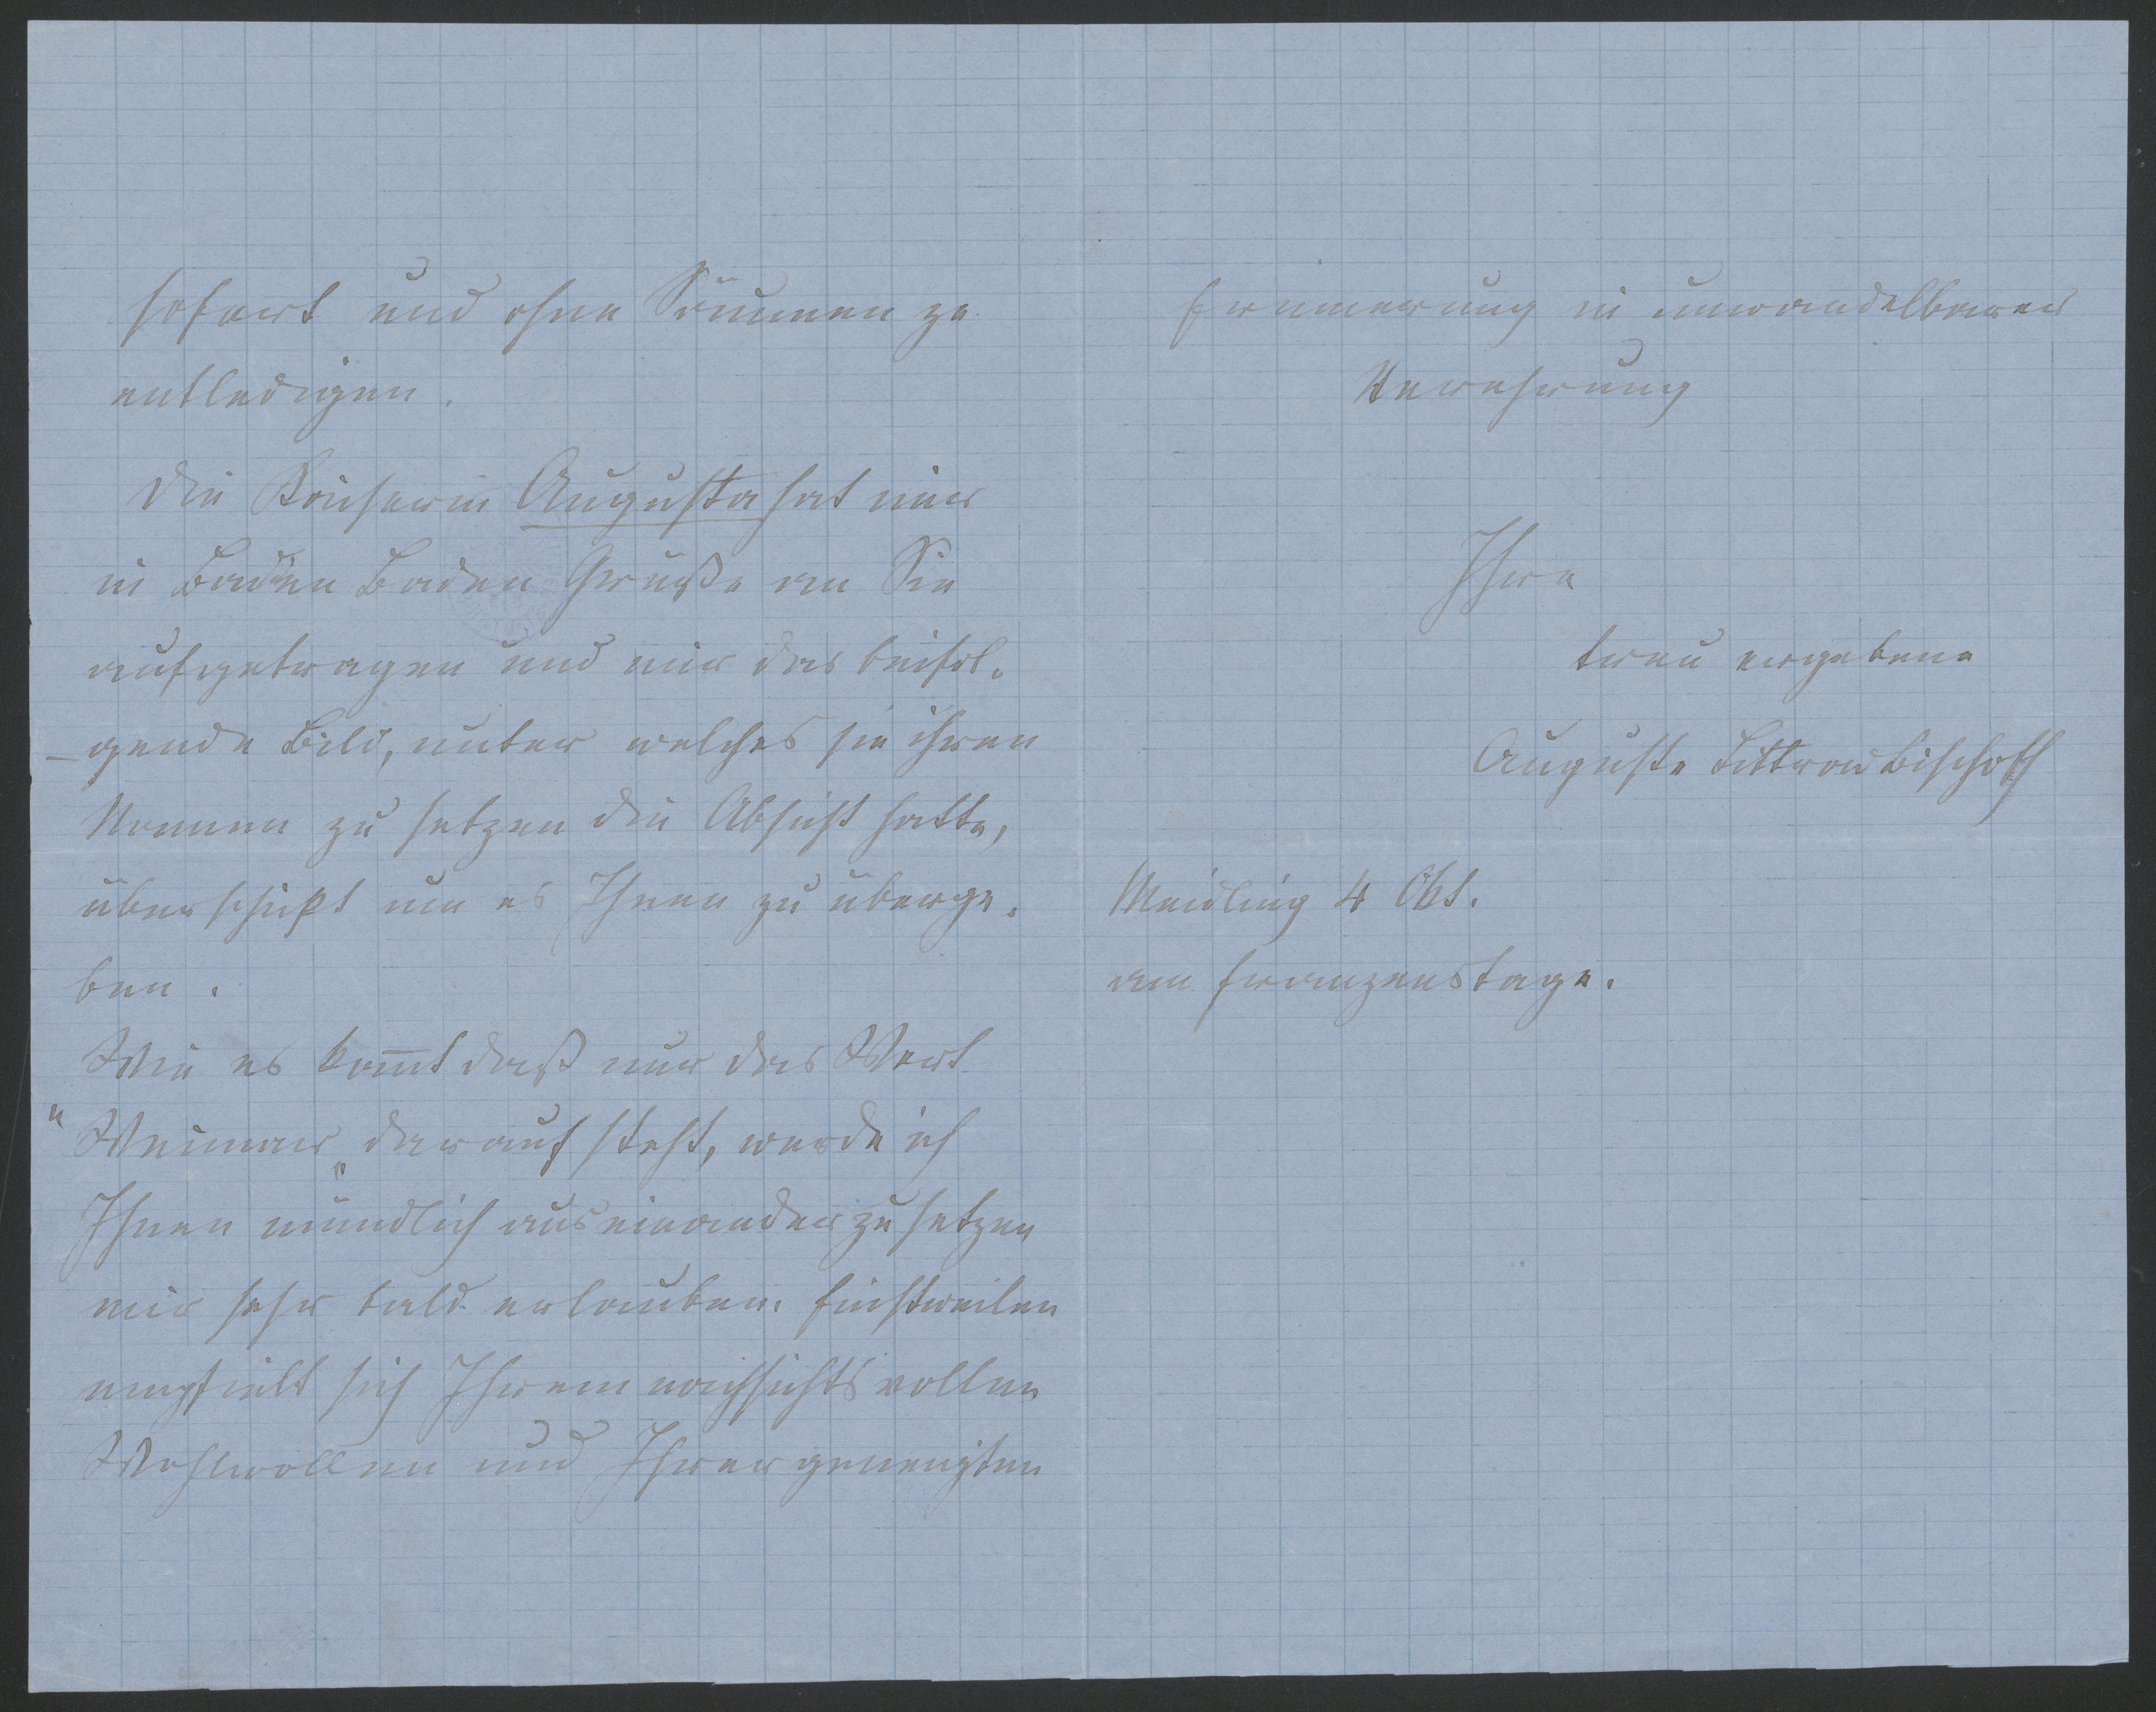 sofort und ohne Säumen zu
entledigen.
Die Kaiserin Augusta hat mir
in Baden Baden Grüße an Sie
aufgetragen und mir das beifol-
gende Bild, unter welches sie ihren
Namen zu setzen die Absicht hatte,
überschikt um es Ihnen zu überge-
ben.
Wie es kom̄t daß nur das Wort
"Weimar" darauf steht, werde ich
Ihnen mündlich auseinander zu setzen
mir sehr bald erlauben. Einstweilen
empfielt sich Ihrem nachsichtsvollen
Wohlwollen und Ihrer geneigten
Erinnerung in unwandelbarer
Verehrung
Ihre
treu ergebene
Auguste Littrow Bischoff
Meidling 4 Okt.
am Franzenstage.